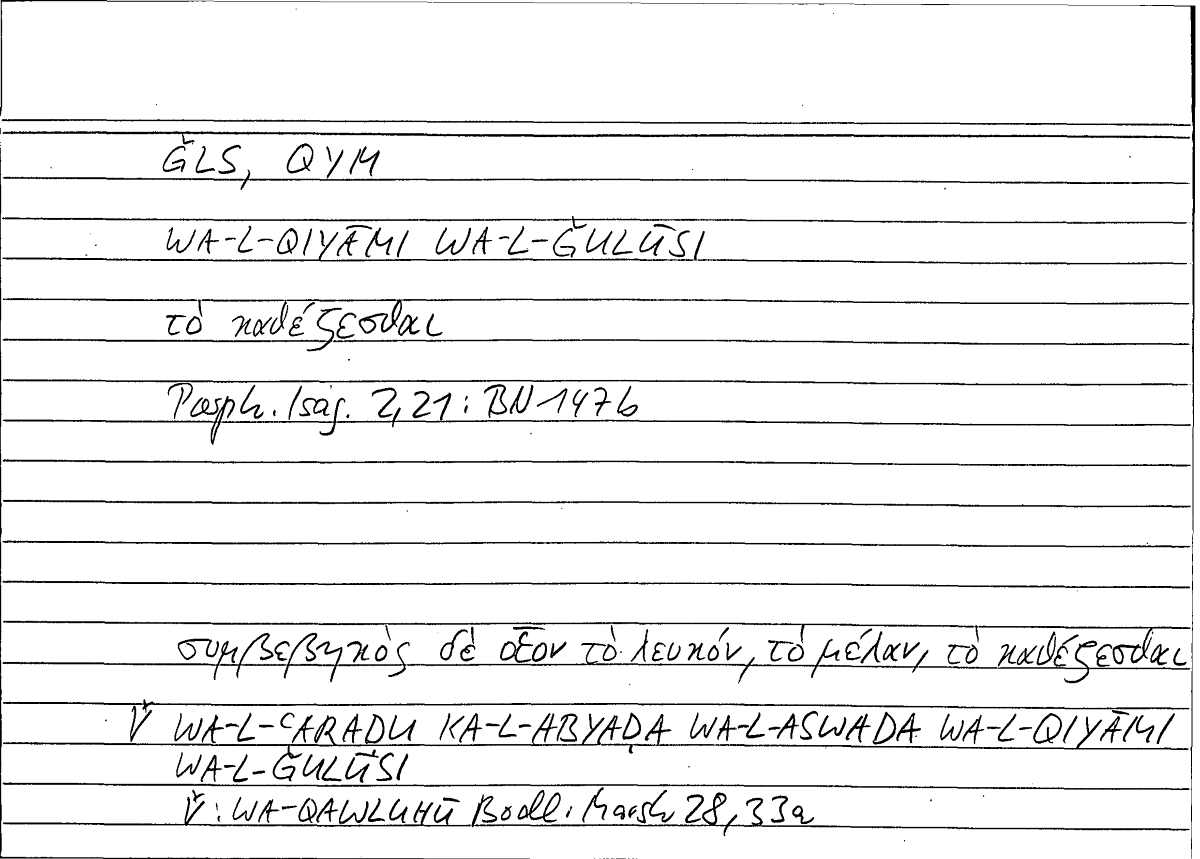 ǦLS, QYM
WA-L-QIYĀMI WA-L-ǦULŪSI
τὸ καθέζεσθαι
Porph. Isag. 2,21: BN 147b
συμβεβηκὸς δὲ οἷον τὸ λευκόν, τὸ μέλαν, τὸ καθέζεσθαι
V̌ WA-L-ʿARADU KA-L-ABYAḌA WA-L-ASWADA WA-L-QIYĀMI
WA-L-ǦULŪSI
V̌: WA-QAWLUHŪ Bodl. Marsh 28,33a